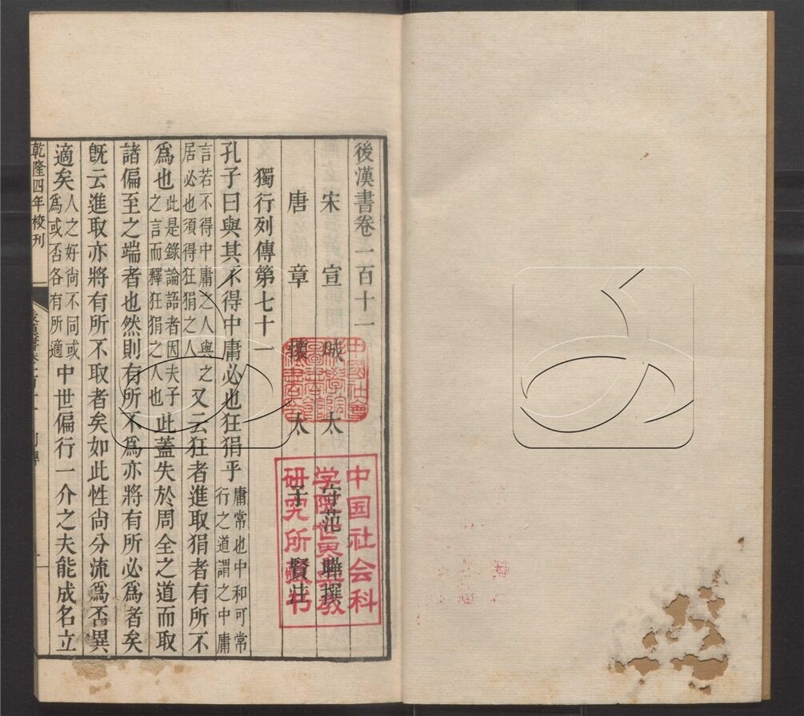 後漢書卷一百十一
宋宣城太守范曄撰
唐章懷太子賢注
獨行列傳第七十一
孔子曰與其不得中庸必也狂狷乎庸常也中和可常行之道謂之中庸
言若不得中庸之人與之居必也須得狂狷之人又云狂者進取狷者有所不
爲也此是錄論語者因夫子之言而釋狂狷之人也此蓋失於周全之道而取
諸偏至之端者也然則有所不爲亦將有所必爲者矣
旣云進取亦將有所不取者矣如此性尚分流爲否異
適矣人之好尚不同或爲或否各有所適中世偏行一介之夫能成名立
乾隆四年校刊
中国社会科
学院
研究所